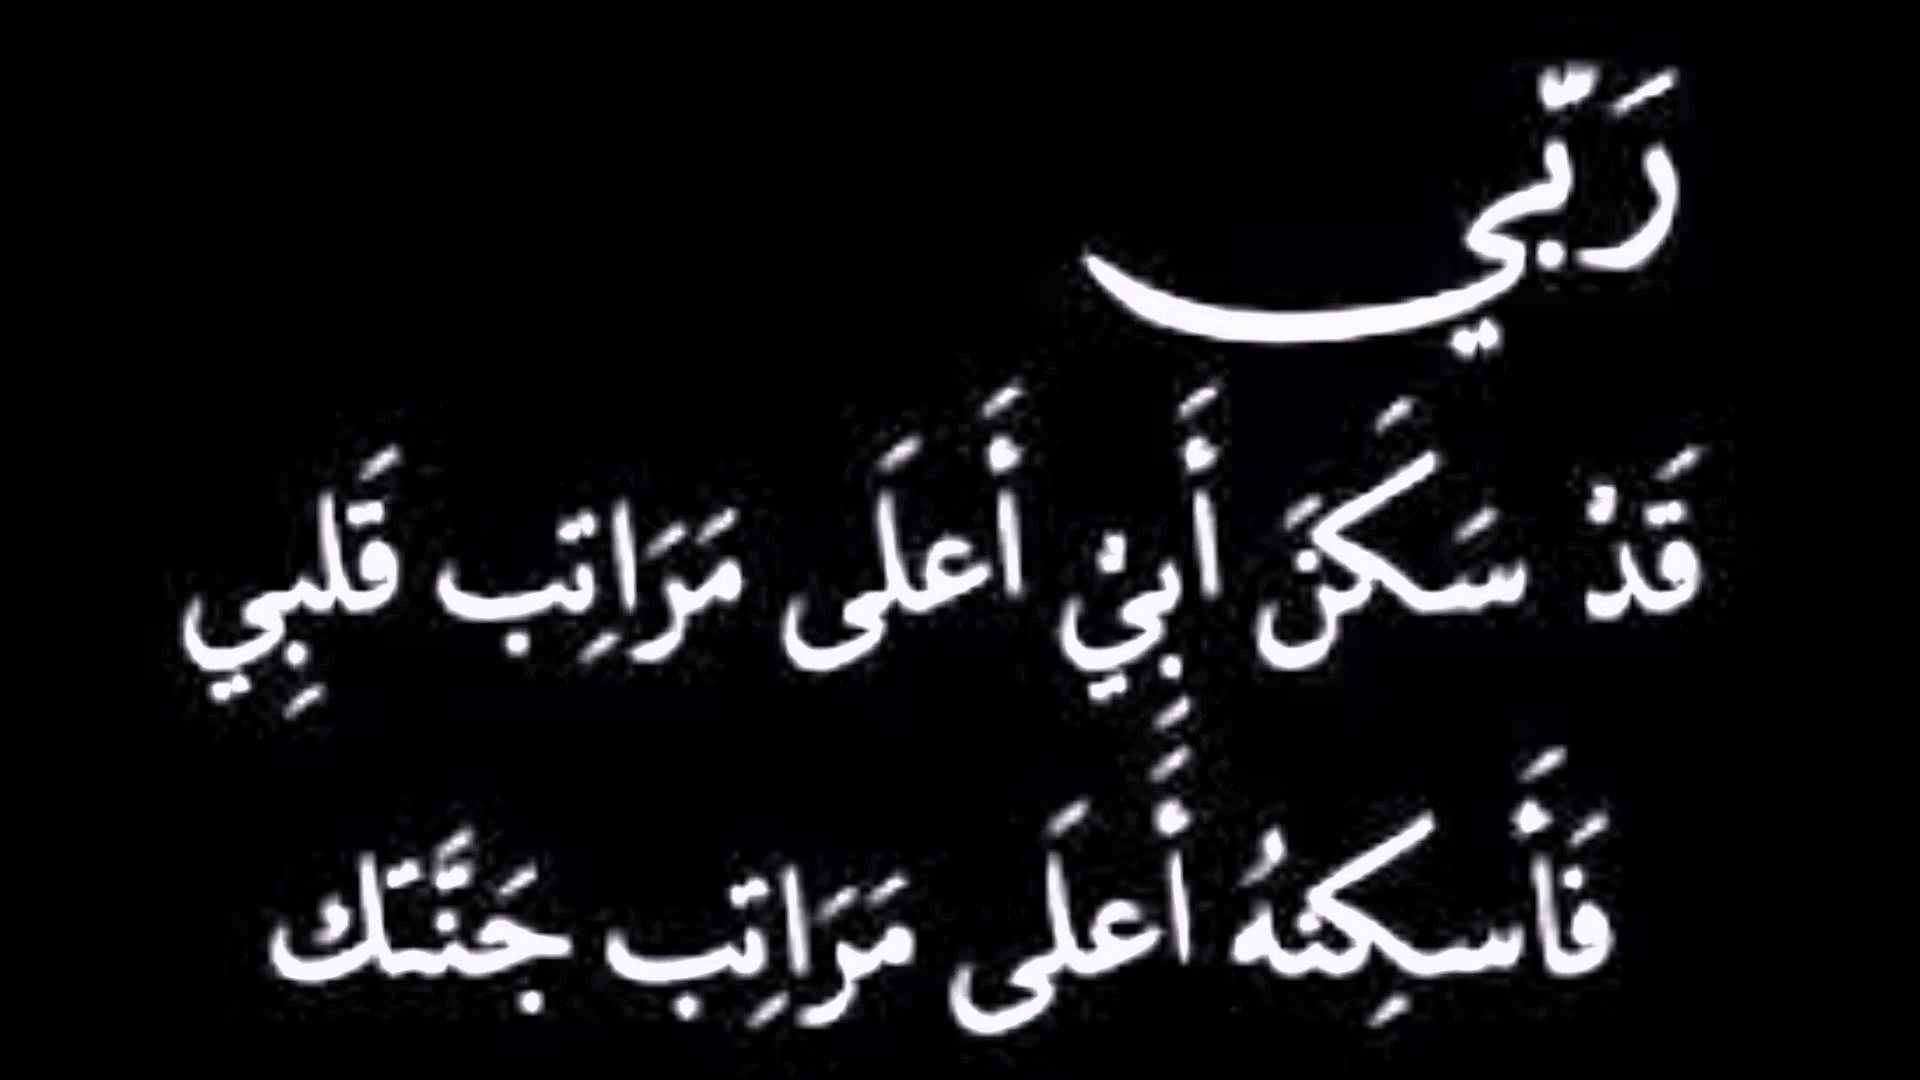 رَبّي
قَدْ سَكَنَ أَبِيْ أَعلَى مَرَاتِب قَلبِي
فَأَسكِنهُ أَعلَى مَرَاتِب جَنَّتك